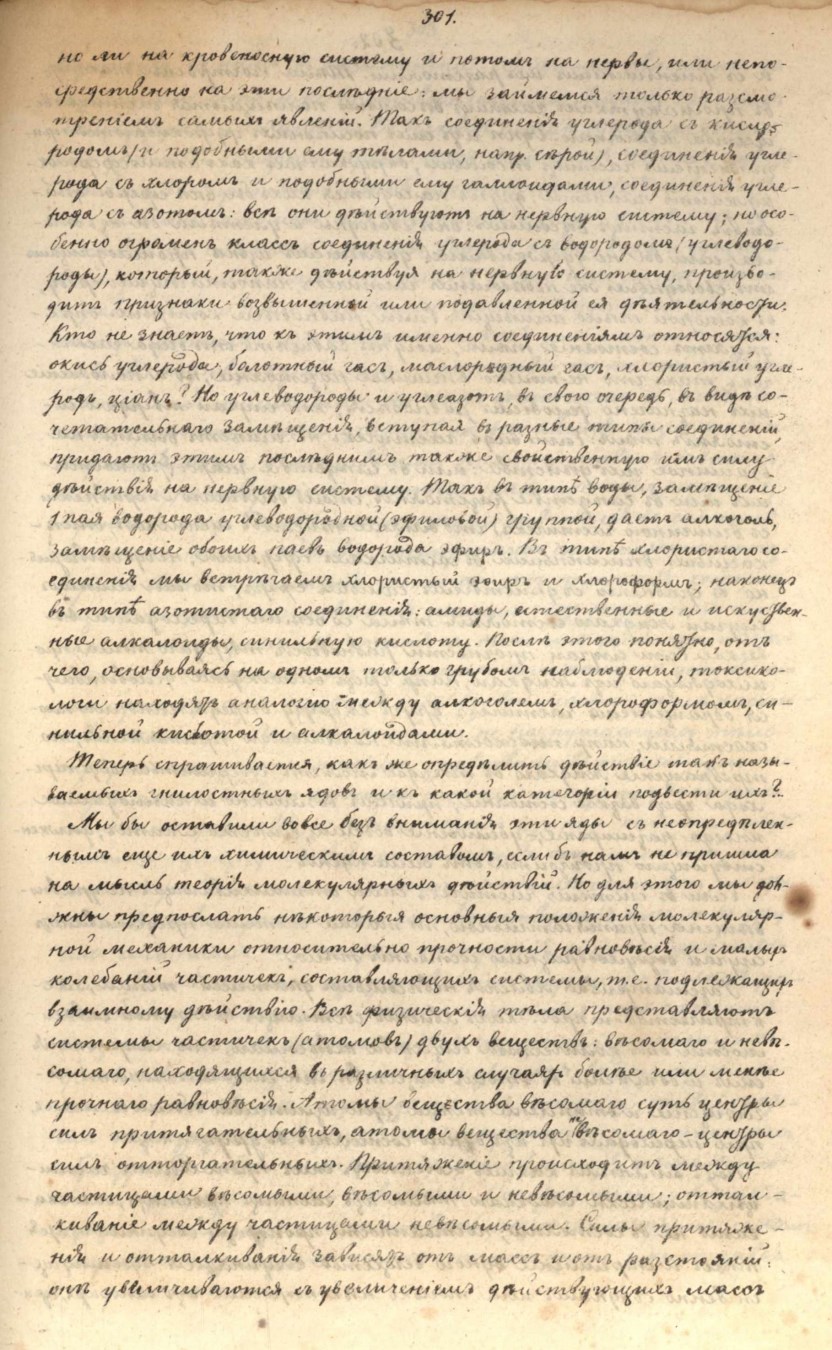 301.
но ли на кровеносную систему и потомъ на нервы, или непо-
средственно на эти послѣднiе: мы займемся только разсмо-
трѣнiемъ самыхъ явленiй. Такъ соединенiя углерода съ кисло-
родомъ (и подобными ему тѣлами, напр. сѣрой), соединенiя угле-
рода съ хлоромъ и подобными ему галлоидами, соединенiя угле-
рода съ азотомъ: всѣ они дѣйствуютъ на нервную систему; но осо-
бенно огроменъ классъ соединенiй углерода съ водородомъ (углеводо-
роды), который, также дѣйствуя на нервную систему, произво-
дитъ признаки возвышенной или подавленной ея дѣятельности.
Кто не знаетъ, что къ этимъ именно соединенiямъ относятся:
окись углерода, болотный газъ, маслородный газъ, хлористый угле-
родъ, цiанъ? Но углеводороды и углеазотъ, въ свою очередь, въ видѣ со-
четательнаго замѣщенiя, вступая въ разные типы соединенiй,
придаютъ этимъ послѣднимъ также свойственную имъ силу
дѣйствiя на нервную систему. Такъ въ типѣ воды, замѣщенiе
1 пая водорода углеводородной (эфиловой) группой, даетъ алкоголь,
замѣщенiе обоихъ паевъ водорода эфиръ. Въ типѣ хлористаго со-
единенiя мы встрѣчаемъ хлористый эфиръ и хлороформъ; наконецъ
въ типѣ азотистаго соединенiя: амиды, естественные и искуствен-
ные алкалоиды, синильную кислоту. Послѣ этого понятно, отъ
чего, основываясь на одномъ только грубомъ наблюденiи, токсико-
логи находятъ аналогiю между алкоголемъ, хлороформомъ, си-
нильной кислотой и алкалоидами.
Теперь спрашивается, какъ же опредѣлить дѣйствiе такъ назы-
ваемыхъ гнилостныхъ ядовъ и къ какой категорiи подвести ихъ?
Мы бы оставили вовсе безъ вниманiя эти яды съ неопредѣлен-
нымъ еще ихъ химическимъ составомъ, еслибъ намъ не пришла
на мысль теорiя молекулярныхъ дѣйствiй. Но для этого мы дол-
жны предпослать нѣкоторыя основныя положенiя молекуляр-
ной механики относительно прочности равновѣсiя и малыхъ
колебанiй частичекъ, составляющихъ системы, т.е. подлежащихъ
взаимному дѣйствiю. Всѣ физическiя тѣла представляютъ
системы частичекъ (атомовъ) двухъ веществъ: вѣсомаго и невѣ-
сомаго, находящихся въ различныхъ случаяхъ болѣе или менѣе
прочнаго равновѣсiя. Атомы вещества вѣсомаго суть центры
силъ притягательныхъ, атомы вещества невѣсомаго – центры
силъ отторгательныхъ. Притяженiе происходитъ между
частицами вѣсомыми, вѣсомыми и невѣсомыми; оттал-
киванiе между частицами невѣсомыми. Силы притяже-
нiя и отталкиванiя зависятъ отъ массъ и отъ разстоянiй:
онѣ увеличиваются съ увеличенiемъ дѣйствующихъ массъ